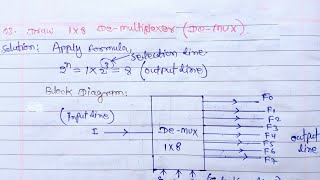 Q3. Draw 1X8 De-multiplexer (DE-MUX).
Solution: Apply formula,
selection line.
2ⁿ = 1 X 2³ = 8 (output line)
Block Diagram:
F0
F1
(Input line)
F2
I
DE-MUX
F3
output
1X8
F4
line
F5
F6
F7